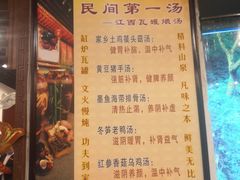 民间第一汤
—江西瓦罐煨汤
家乡土鸡茶头菇汤:
健胃补脑，温中补气
黄豆猪手汤:
强筋补肾，健脾养颜
墨鱼海带排骨汤:
清热止渴，养阴补虚
冬笋老鸭汤:
滋阴暖胃，补肾益气
红参香菇乌鸡汤:
滋阴养颜，温中补气
缸炉瓦罐
文火慢炖
功夫到家
精科山泉
凡味之本
鲜美无比